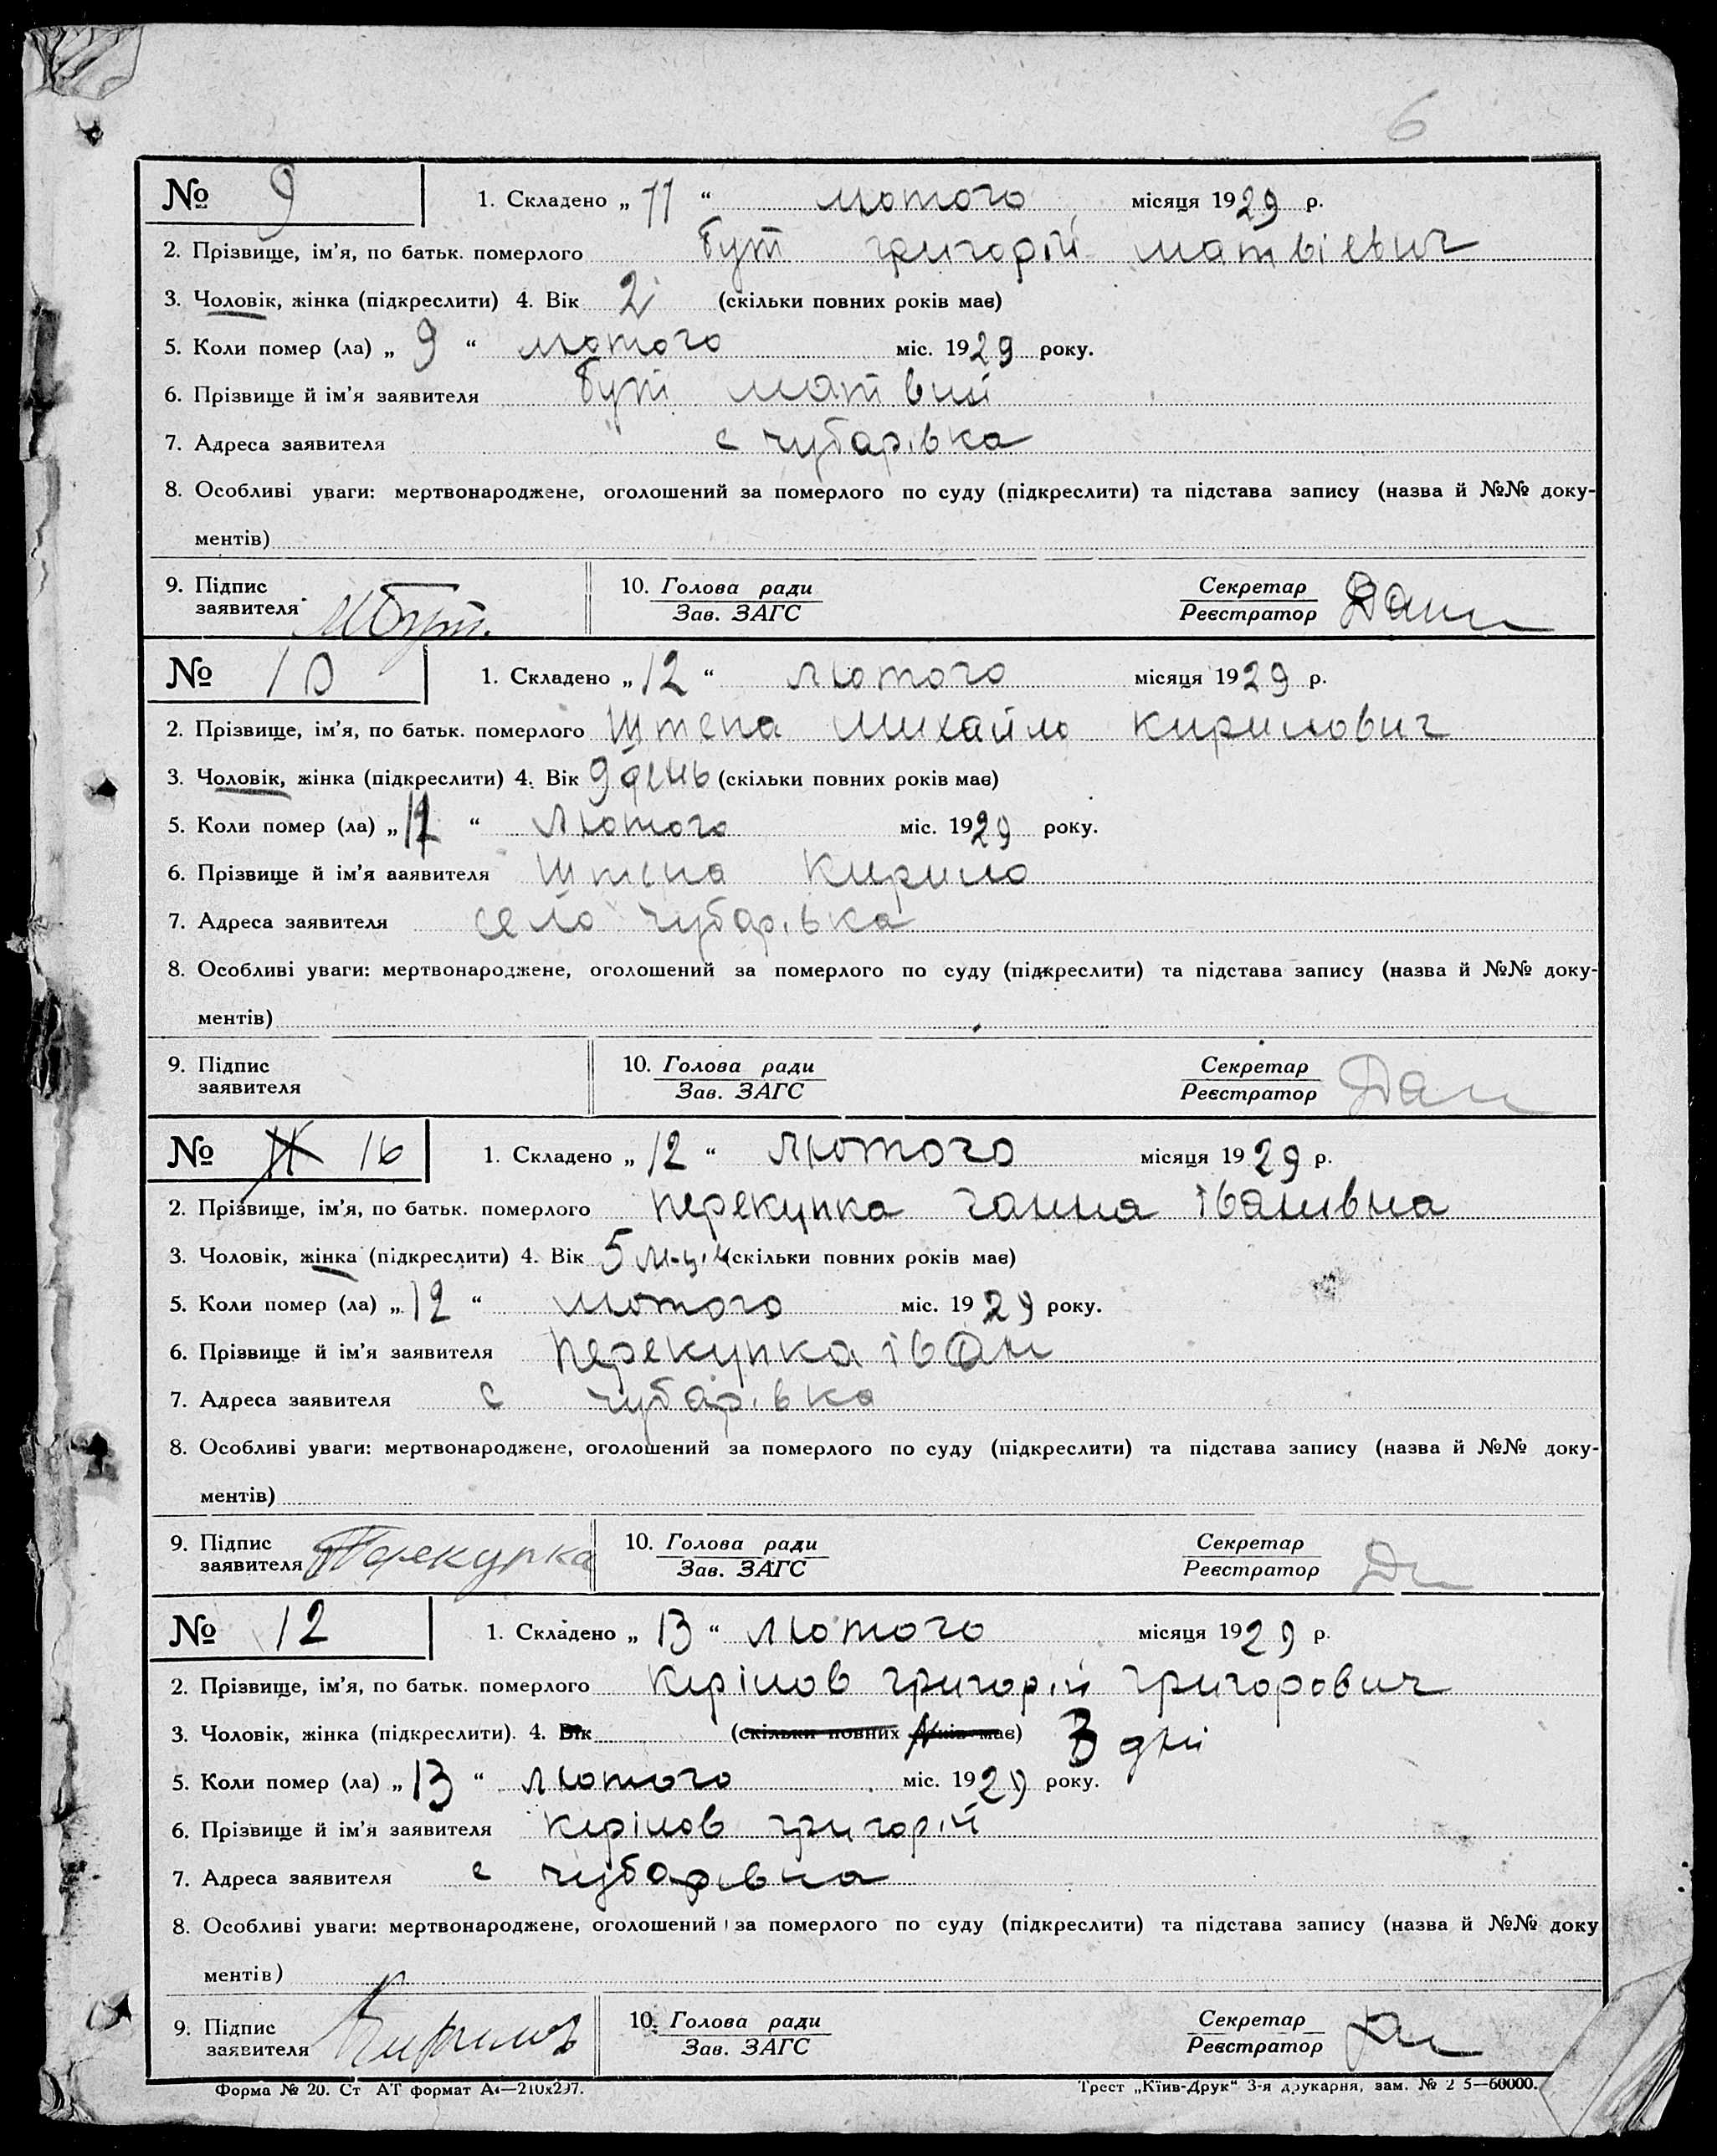 6
№ 9 1. Складено „ 11 “ лютого місяця 1929 р.
2. Прізвище, ім'я, по батьк. померлого бут григорій матвієвич
3. Чоловік, жінка (підкреслити) 4. Вік 2 (скільки повних років має)
5. Коли помер (ла) „ 9 “ лютого міс. 1929 року.
6. Прізвище й ім'я заявителя бут матвий
7. Адреса заявителя с чубарівка
8. Особливі уваги: мертвонароджене, оголошений за померлого по суду (підкреслити) та підстава запису (назва й №№ доку-
ментів)
9. Підпис заявителя М Бут. 10. Голова ради Зав. ЗАГС Секретар Реєстратор
№ 10 1. Складено „ 12 “ лютого місяця 1929 р.
2. Прізвище, ім'я, по батьк. померлого Штепа михайло кирилович
3. Чоловік, жінка (підкреслити) 4. Вік 9 день (скільки повних років має)
5. Коли помер (ла) „ “ лютого міс. 1929 року.
6. Прізвище й ім'я ааявителя Штепа Кирило
7. Адреса заявителя село чубарівка
8. Особливі уваги: мертвонароджене, оголошений за померлого по суду (підкреслити) та підстава запису (назва й №№ доку-
ментів)
9. Підпис заявителя 10. Голова ради Зав. ЗАГС Секретар Реєстратор
№ 11 1б 1. Складено „ 12 “ лютого місяця 1929 р.
2. Прізвище, ім'я, по батьк. померлого перекупка ганна іванивна
3. Чоловік, жінка (підкреслити) 4. Вік 5 м-ців (скільки повних років має)
5. Коли помер (ла) „ 12 “ лютого міс. 1929 року.
6. Прізвище й ім'я заявителя перекупка іван
7. Адреса заявителя с чубарівка
8. Особливі уваги: мертвонароджене, оголошений за померлого по суду (підкреслити) та підстава запису (назва й №№ доку-
ментів)
9. Підпис заявителя Перекупка 10. Голова ради Зав. ЗАГС Секретар Реєстратор
№ 12 1. Складено „ 13 “ лютого місяця 1929 р.
2. Прізвище, ім'я, по батьк. померлого кірілов григорій григорович
3. Чоловік, жінка (підкреслити). 4. Вік (скільки повних років має) 3 дні
5. Коли помер (ла) „ 13 “ лютого міс. 1929 року.
6. Прізвище й ім'я заявителя кірілов григорій
7. Адреса заявителя с чубарівка
8. Особливі уваги: мертвонароджене, оголошений за померлого по суду (підкреслити) та підстава запису (назва й №№ доку
ментів)
9. Підпис заявителя Кирилов 10. Голова ради Зав. ЗАГС Секретар Реєстратор
Форма № 20. Ст АТ формат А4—210х297. Трест „Київ-Друк“ 3-я друкарня, зам. № 2 5—60000.